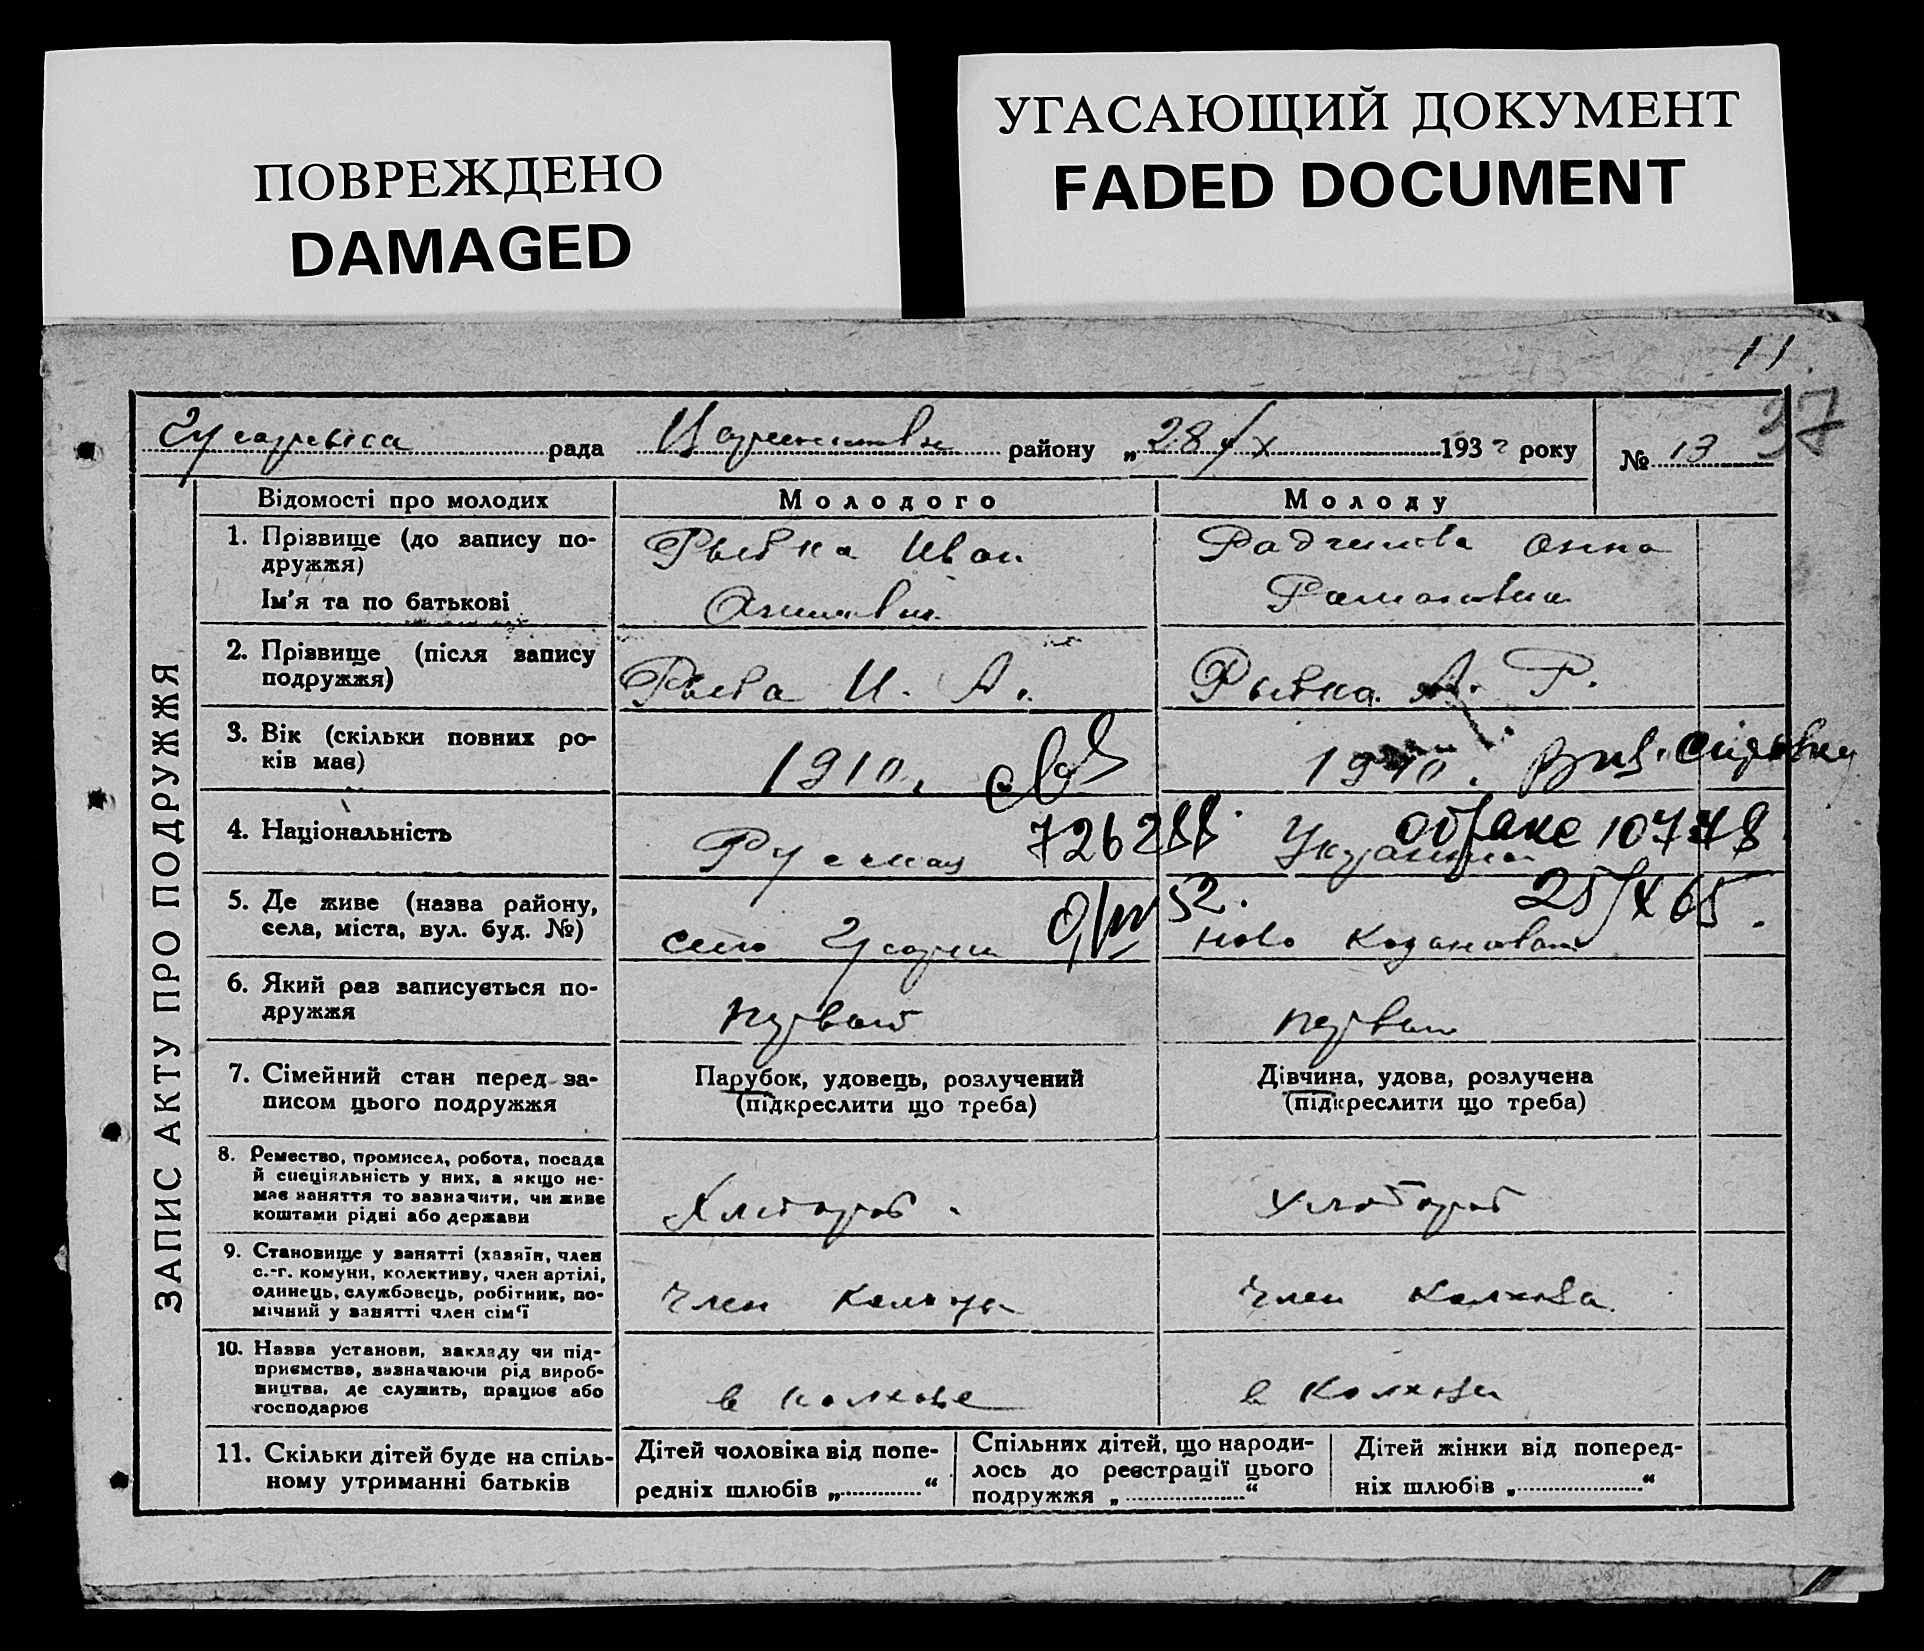 ПОВРЕЖДЕНО
DAMAGED
УГАСАЮЩИЙ ДОКУМЕНТ
FADED DOCUMENT
11
37
рада района „28 / X 193 року № 13
ЗАПИС АКТУ ПРО ПОДРУЖЖЯ
Відомості про молодих
Молодого
Молоду
1. Прізвище (до запису по-
дружжя)
Ім'я та по батькові
Рыбка Иван
Анна
Романовна
2. Прізвище (після запису
подружжя)
Рыбка И. А.
Рыбка А. Р.
3. Вік (скільки повних ро-
ків має)
1910.
1910.
4. Національність
Русская
726288.
Украинка
о браке 10778
5. Де живе (назва району,
села, міста, вул. буд. №)
село
52.
Ново
25/X 65.
6. Який раз записується по-
дружжя
первый
первый
7. Сімейний стан перед за-
писом цього подружжя
Парубок, удовець, розлучений
(підкреслити що треба)
Дівчина, удова, розлучена
(підкреслити що треба)
8. Ремество, промисел, робота, посада
й спеціяльність у них, а якщо не-
має заняття то зазначити, чи живе
коштами рідні або держави
Хлебороб.
Хлебороб
9. Становище у занятті (хазяїн, член
с.-г. комуни, колективу, член артілі,
одинець, службовець, робітник, по-
мічний у занятті член сім'ї
член колхоза
член колхоза.
10. Назва установи, закладу чи під-
приємства, зазначаючи рід вироб-
ництва, де служить, працює або
господарює
в колхозе
в колхозе
11. Скільки дітей буде на спіль-
ному утриманні батьків
Дітей чоловіка від попе-
редніх шлюбів „ “
Спільних дітей, що народи-
лось до реєстрації цього
подружжя „ “
Дітей жінки від поперед-
ніх шлюбів „ “